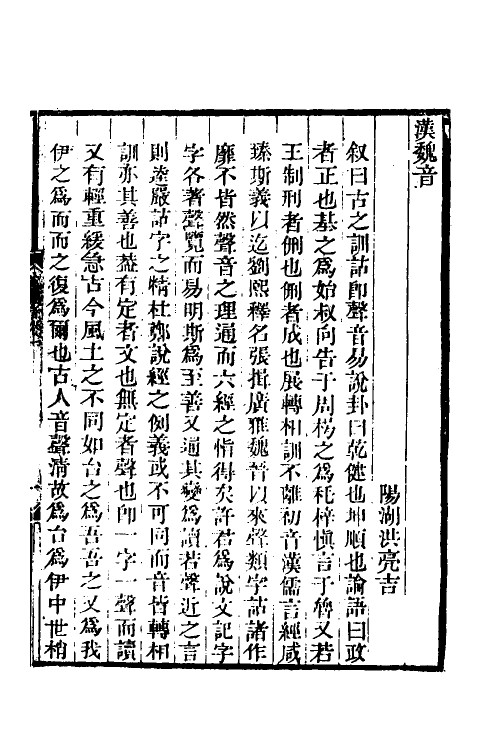 漢魏音
陽湖洪亮吉
叙曰古之訓詁卽聲音易說卦曰乾健也坤順也論語曰政
者正也基之爲始叔向告于周杨之爲秏梓愼言于魯又若
王制刑者侀也侀者成也展轉相訓不離初音漢儒言經咸
臻斯義以迄劉熙釋名張揖廣雅魏晉以來聲類字詁諸作
靡不皆然聲音之理通而六經之恉得矣許君爲說文記字
字各著聲覽而易明斯爲至善又通其變爲讀若聲近之言
則遂嚴詁字之情杜鄭說經之例義或不可同而音皆轉相
訓亦其善也葢有定者文也無定者聲也卽一字一聲而讀
又有輕重緩急古今風土之不同如台之爲吾吾之又爲我
伊之爲而而之復爲爾也古人音聲淸故爲台爲伊中世稍